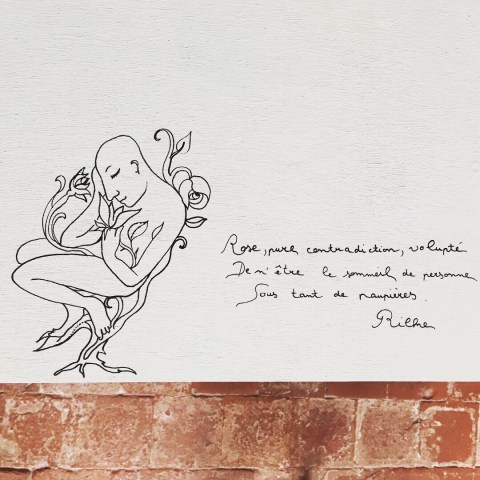 Rose, pure contradiction, volupté
De n'être le sommeil de personne
Sous tant de paupières.
Rilke